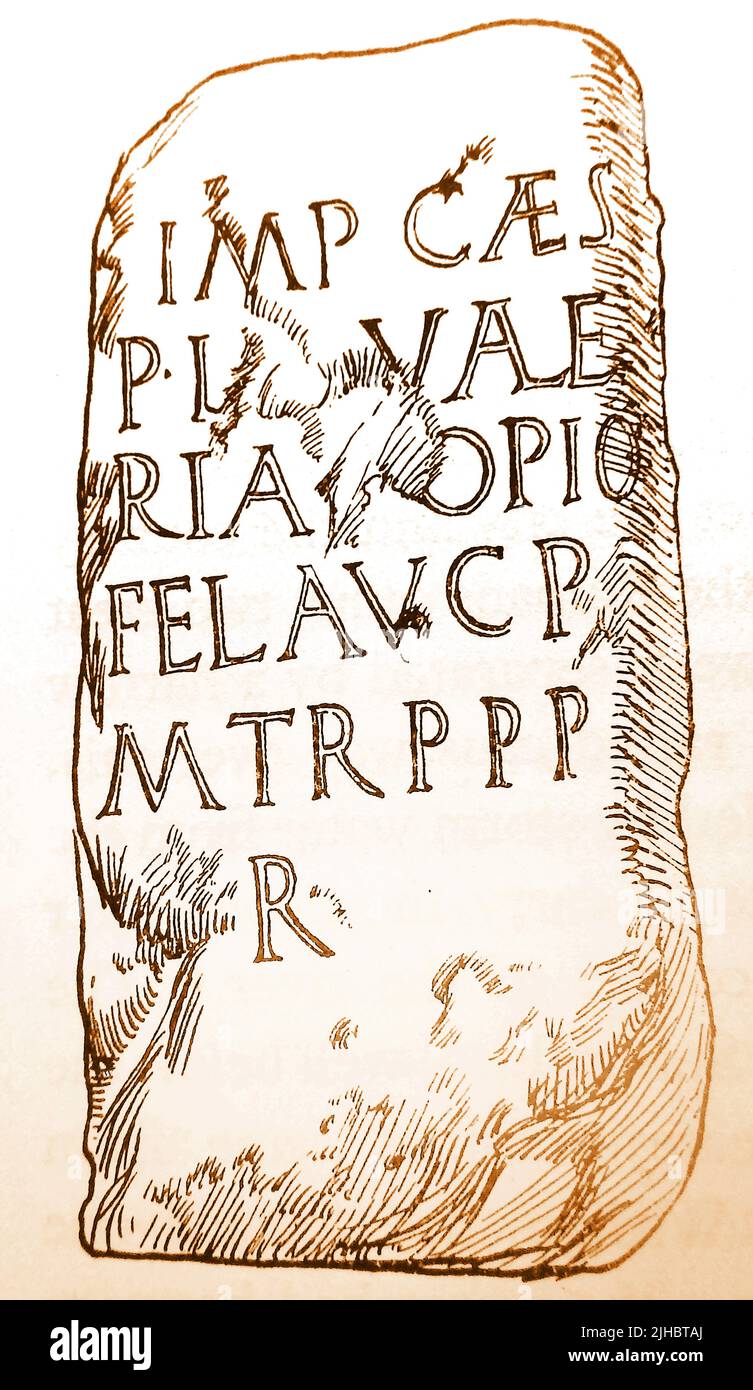 IMP CÆS
P·L VALE
RIA OPIO
FEL AVC P
M TR P P P
R
alamy
Image ID: 2JHBTAJ
www.alamy.com